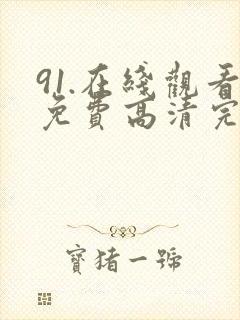 91.在綫觀看
免費高清完
寶猪一號